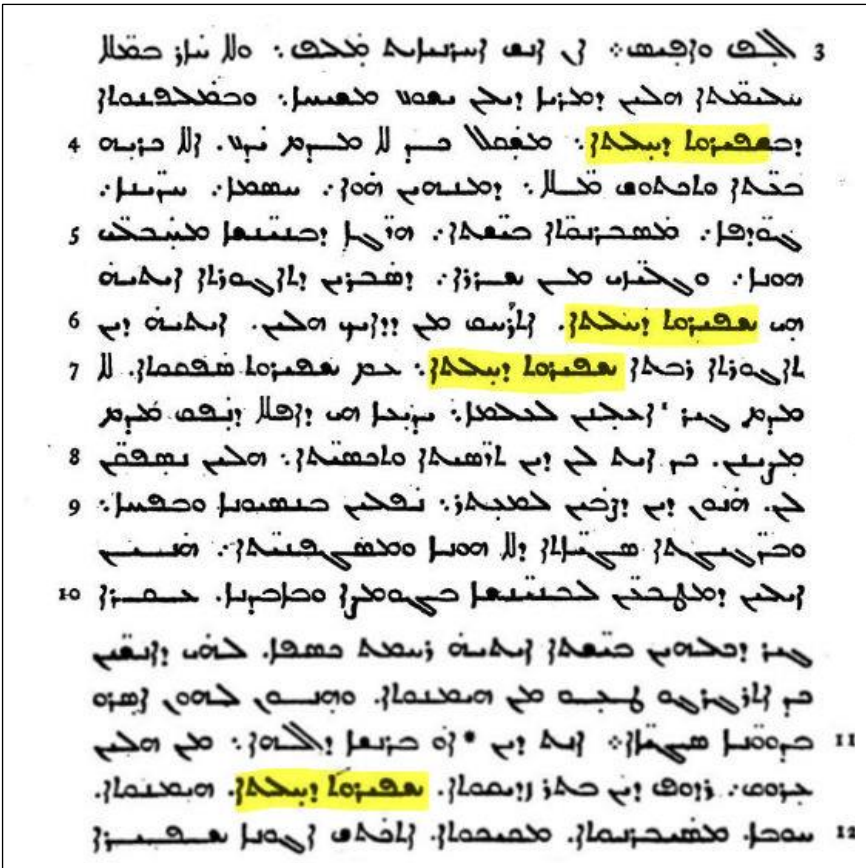 3 ܐܠܦ ܘܐܦܝܣ܀ ܐܢ ܐܢܫ ܐܚܪܢܝܐܝܬ ܡܠܦ܆ ܘܠܐ ܚܐܪ ܒܡ̈ܠܐ
ܚܠܝܡ̈ܬܐ ܗܠܝܢ ܕܡܪܝܐ ܕܝܠܢ ܝܫܘܥ ܡܫܝܚܐ܆ ܘܒܡܠܦܢܘܬܐ
4 ܕܒܫܦܝܪܘܬ ܕܚܠܬܐ܆ ܡܫܩܠ ܟܕ ܠܐ ܡܕܡ ܝܕܥ. ܐܠܐ ܟܪܝܗ
ܒܒܥ̈ܬܐ ܘܬܟܬܘܫ ܡ̈ܠܐ܆ ܕܡܢܗܝܢ ܗܘܐ܆ ܚܣܡܐ܆ ܚܪ̈ܝܢܐ܆
5 ܓܘ̈ܕܦܐ܆ ܡܣܒܪܢܘ̈ܬܐ ܒܝ̈ܫܬܐ܆ ܗܪ̈ܓܐ ܕܒܢܝ̈ܢܫܐ ܡܚܒܠ̈ܝ
ܗܘܢܐ܆ ܘܓܠܝ̈ܙܝ ܡܢ ܫܪܪܐ܆ ܕܣܒܪܝܢ ܕܬܐܓܘܪܬܐ ܐܝܬܝܗ̇
6 ܗܝ ܫܦܝܪܘܬ ܕܚܠܬܐ. ܐܬܪܚܩ ܡܢ ܕܕܐܝܟ ܗܠܝܢ. ܐܝܬܝܗ̇ ܕܝܢ
7 ܬܐܓܘܪܬܐ ܪܒܬܐ ܫܦܝܪܘܬ ܕܚܠܬܐ܆ ܥܡ ܫܦܝܪܘܬ ܣܦܩܘܬܐ. ܠܐ
ܡܕܡ ܓܝܪ ܐܥܠܢܢ ܠܥܠܡܐ܆ ܝܕܝܥܐ ܗܝ ܕܐܦܠܐ ܕܢܦܩ ܡܕܡ
8 ܡܨܝܢܢ. ܟܕ ܐܝܬ ܠܢ ܕܝܢ ܬܪ̈ܣܝܬܐ ܘܬܟܣܝ̈ܬܐ܆ ܗܠܝܢ ܢܣܦܩ̈ܢ
9 ܠܢ. ܗܢܘܢ ܕܝܢ ܕܨܒܝܢ ܠܡܥܬܪ܆ ܢܦܠܝܢ ܒܢܣܝܘܢܐ ܘܒܦܚܐ܆
ܘܒܪ̈ܓܝܓܬܐ ܣܓܝ̈ܐܬܐ ܕܠܐ ܗܘܢܐ ܘܡܣܓܦܢܝ̈ܬܐ܆ ܗܢܝܢ
10 ܐܝܠܝܢ ܕܡܛܒܥ̈ܢ ܠܒܢܝ̈ܢܫܐ ܒܓܘܡܨܐ ܘܒܐܒܕܢܐ. ܥܩܪܐ
ܓܝܪ ܕܟܠܗܝܢ ܒܝ̈ܫܬܐ ܐܝܬܝܗ̇ ܪܚܡܬ ܟܣܦܐ. ܠܗ̇ܝ ܕܐܢܫ̈ܝܢ
ܟܕ ܐܬܪܓܪܓܘ ܛܥܘ ܡܢ ܗܝܡܢܘܬܐ. ܘܗܢܘܢ ܠܗܘܢ ܐܣܪܘ
11 ܒܕܘ̈ܘܢܐ ܣܓܝ̈ܐܐ܀ ܐܢܬ ܕܝܢ *ܐܘ ܒܪܢܫܐ ܕܐܠܗܐ܆ ܡܢ ܗܠܝܢ
ܥܪܘܩ܆ ܪܕܘܦ ܕܝܢ ܒܬܪ ܙܕܝܩܘܬܐ. ܫܦܝܪܘܬ ܕܚܠܬܐ. ܗܝܡܢܘܬܐ.
12 ܚܘܒܐ. ܡܣܝܒܪܢܘܬܐ. ܡܟܝܟܘܬܐ. ܐܬܟܬܫ ܐܓܘܢܐ ܫܦܝܪܐ